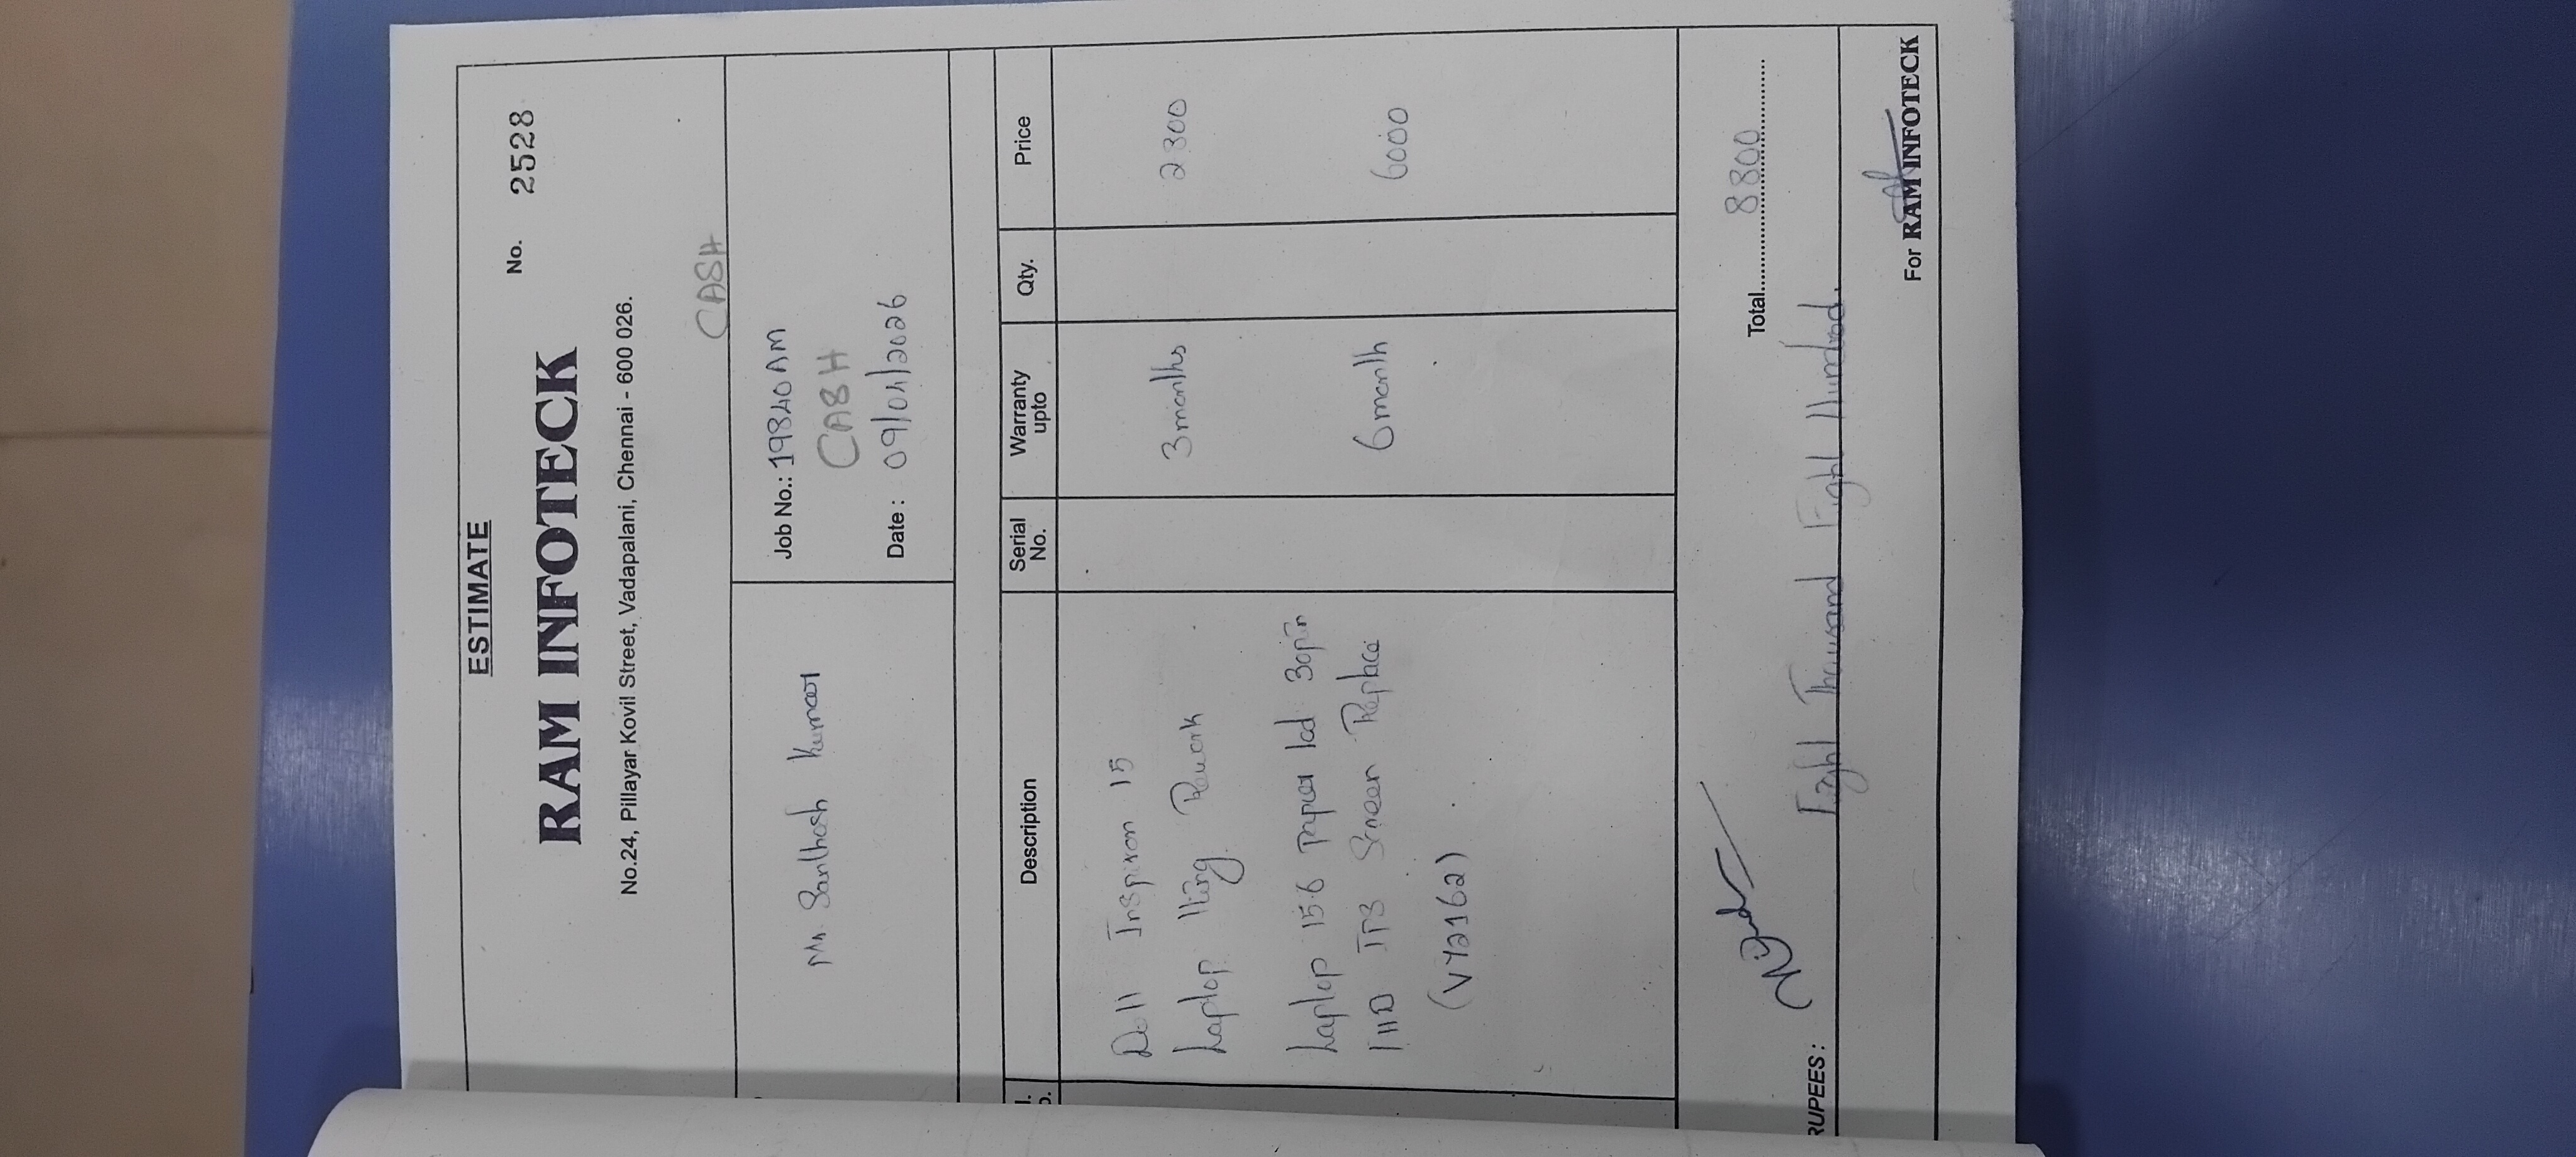 ESTIMATE
RAM INFOTECK
No. 2528
No.24, Pillayar Kovil Street, Vadapalani, Chennai - 600 026.
CASH
Mr. Santhosh Kumar
Job No.: 19840AM
CASH
Date : 09/04/2026
Description Serial No. Warranty upto Qty. Price
Dell Inspiron 15
Laptop Hing Rework 3 months 2800
Laptop 15.6 Paper led 30pin 6 month 6000
FHD IPS Screen Replace
(VY2162)
Total 8800
RUPEES : Eight Thousand Eight Hundred.
For RAM INFOTECK